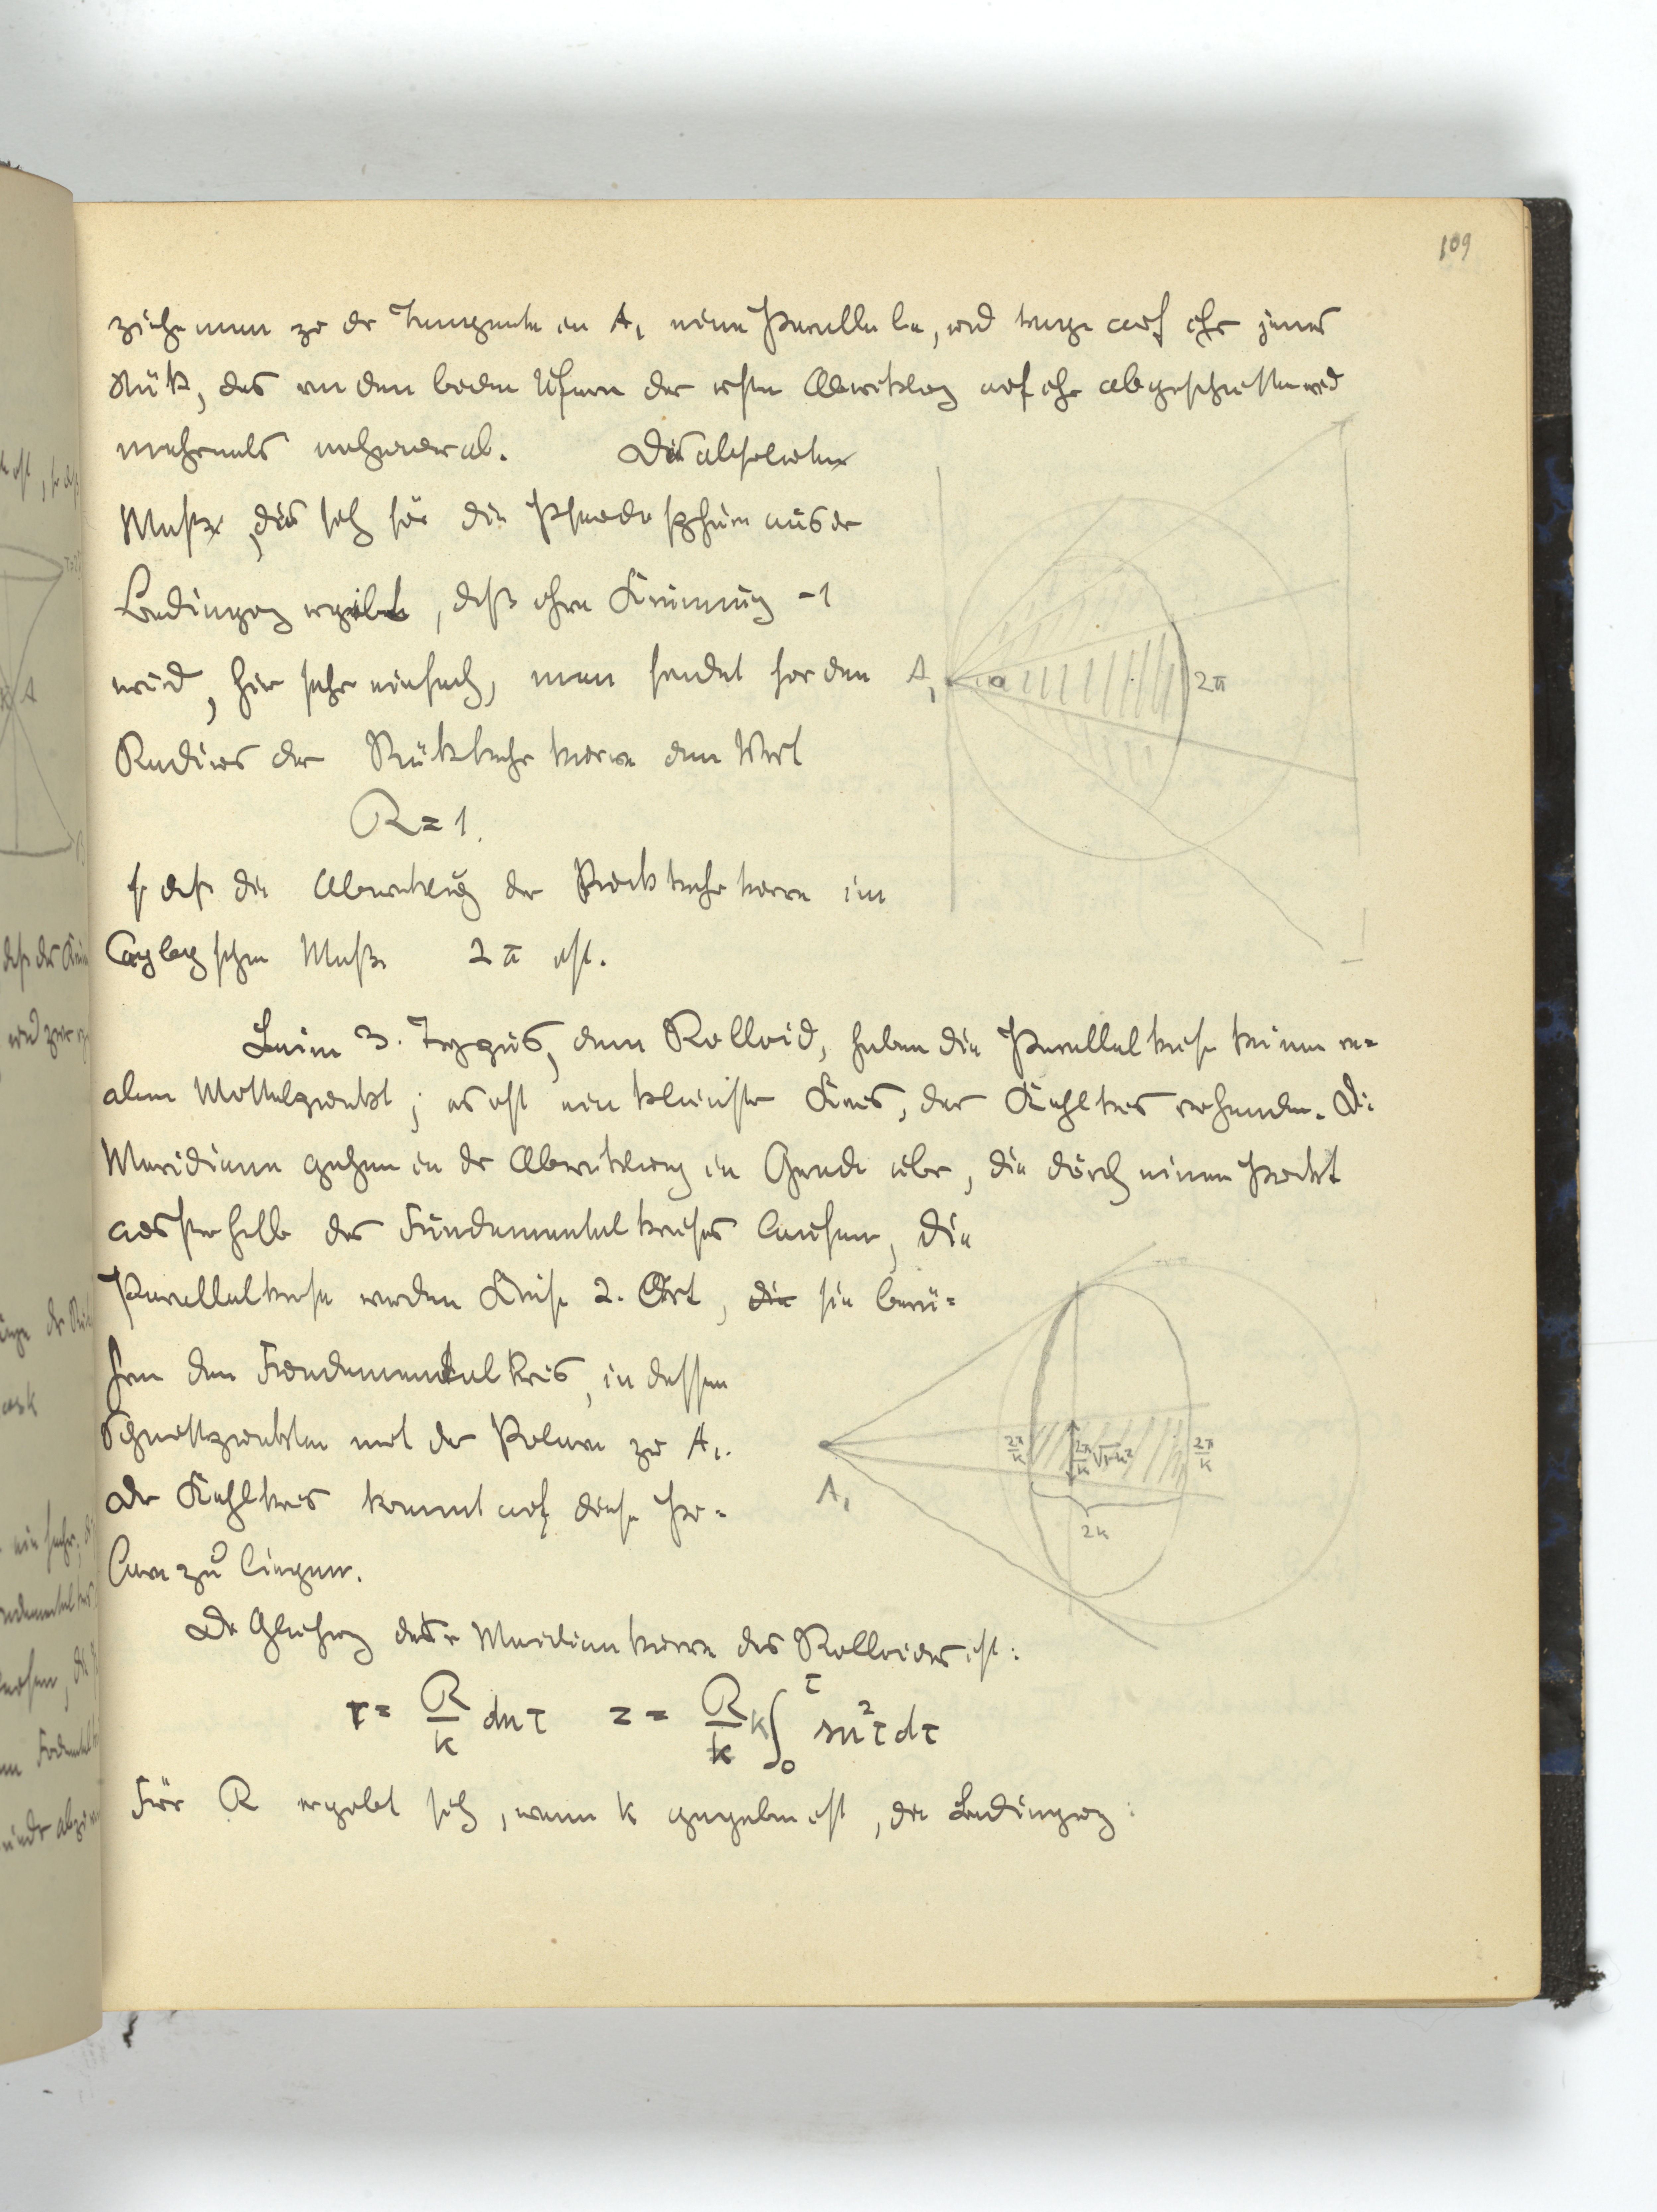 109
ziehe man zu der Tangente in A₁ eine Parallele, und trage auf ihr jenes
Stük, das von den beiden Ufern der ersten Abwiklung auf ihr abgeschnitten wird
mehrmals nacheinander ab. Die absoluten
Maße, die sich für die Pseudosphäre aus der
Bedingung ergibt, daß ihre Krümmung -1
wird, hier sehr einfach, man findet für den
Radius der Rükkehrkurve den Wert
R = 1.
so daß die Abwiklung der Rückkehrkurve im
Cayleyschen Maße 2π ist.
Beim 3. Typus, dem Rolloid, haben die Parallelkreise keinen re=
alen Mittelpunkt; es ist ein kleinster Kreis, der Kehlkreis vorhanden. Die
Meridiane gehen in der Abwiklung in Gerade über, die durch einen Punkt
ausserhalb des Fundamentalkreises laufen, die
Parallelkreise werden Kreise 2. Art, die sie berü=
hren den Fundamentalkreis, in dessen
Schnittpunkten mit der Polaren zu A₁.
Der Kehlkreis kommt auf diese Po=
lare zu liegen.
Die Gleichung der Meridiankurve des Rolloides ist:
r = R/k dn τ z = R/k k ∫₀^τ sn² τ dτ
Für R ergibt sich, wenn k gegeben ist, die Bedingung:
A₁
2π
A₁
2π/k
2π/k √1-k²
2π/k
2k